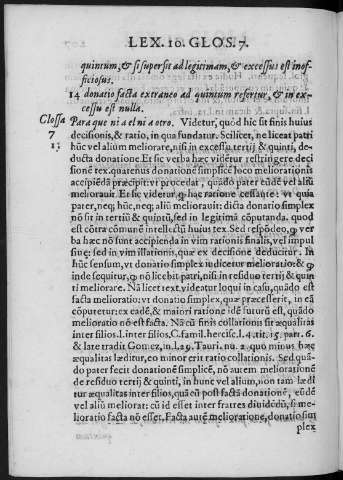 LEX. 10. GLOS. 7.
quintum, & si supersit ad legitimam, & excessus est inof-
ficiosus.
14 donatio facta extraneo ad quintum refertur, & in ex-
cessu est nulla.
Glossa Para que ni a el ni a otro. Videtur, quòd hic sit finis huius
7 decisionis, & ratio, in qua fundatur. Scilicet, ne liceat patri
13 hūc vel alium meliorare, nisi in excessu tertij & quinti, de-
ducta donatione. Et sic verba hæc videtur restringere deci
sionē tex. quatenus donationē simplicē loco meliorationis
accipiēdā præcipit: vt procedat, quādo pater eūdē vel aliū
meliorauit. Et sic videtur ꝙ hac ratione cessante: vt quia
pater, neq; hūc, neq; aliū meliorauit: dicta donatio simplex
nō sit in tertiū & quintū, sed in legitimā cōputanda. quod
est cōtra cōmunē intellectū huius tex. Sed respōdeo, ꝙ ver
ba hæc nō sunt accipienda in vim rationis finalis, vel impul
siuę: sed in vim illationis, quæ ex decisione deducitur. In
hūc sensum, vt donatio simplex iudicetur melioratio: & ꝙ
inde sequitur, ꝙ nō licebit patri, nisi in residuo tertij & quin
ti meliorare. Nā licet text. videatur loqui in casu, quādo est
facta melioratio: vt donatio simplex, quæ præcesserit, in eā
cōputetur: ex eadē, & maiori ratione idē futurū est, quādo
melioratio nō est facta. Nā cū finis collationis sit æqualitas
inter filios. l. inter filios, C. famil. hercisc. l. 4. tit. 15. part. 6.
& late tradit Gomez, in l. 29. Tauri. nu. 2. quo minus hæc
æqualitas læditur, eo minor erit ratio collationis. Sed, quā
do pater fecit donationē simplicē, nō autem meliorationē
de residuo tertij & quinti, in hunc vel alium, non tam lædi
tur æqualitas inter filios, quā cū post factā donationē, eūdē
vel aliū meliorat: cū id esset inter fratres diuidēdū, si me-
lioratio facta nō esset. Facta autē melioratione, donatio sim
plex